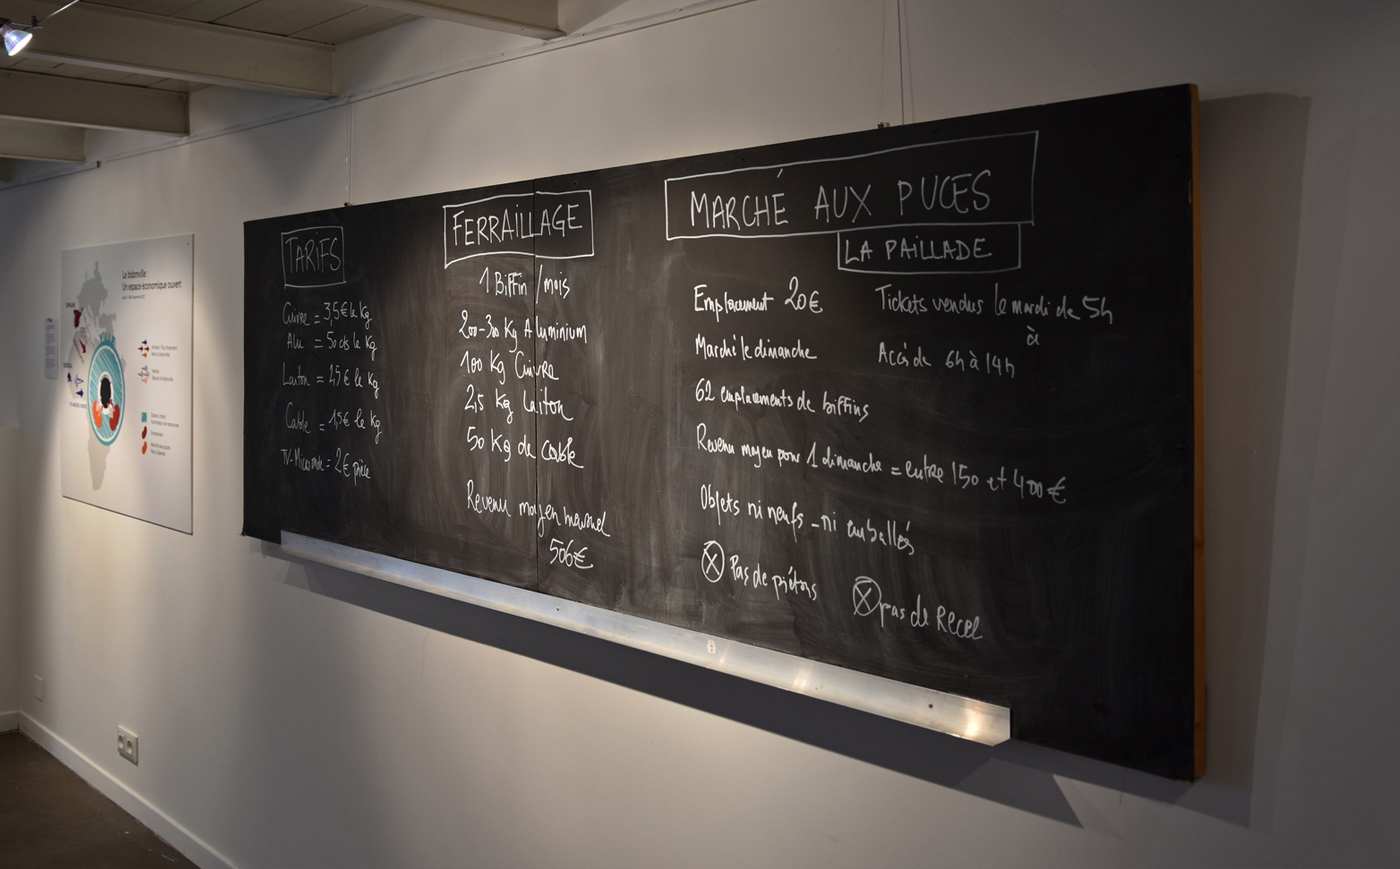 Le bidonville :
Un espace économique ouvert
TARIFS
Cuivre = 3,5€ le Kg
Alu = 50 cts le Kg
Laiton = 2,5€ le Kg
Cable = 1,5€ le Kg
= 2€ pièce
FERRAILLAGE
1 Biffin / mois
200-300 Kg Aluminium
100 Kg Cuivre
2,5 Kg Laiton
50 Kg de cable
Revenu moyen mensuel
506€
MARCHÉ AUX PUCES
LA PAILLADE
Emplacement 20€
Marché le dimanche
62 emplacements de biffins
Revenu moyen pour 1 dimanche = entre 150 et 400€
Objets ni neufs - ni emballés
Pas de piétons
pas de Recel
Tickets vendus le mardi de 5h
à
Accès de 6h à 14h